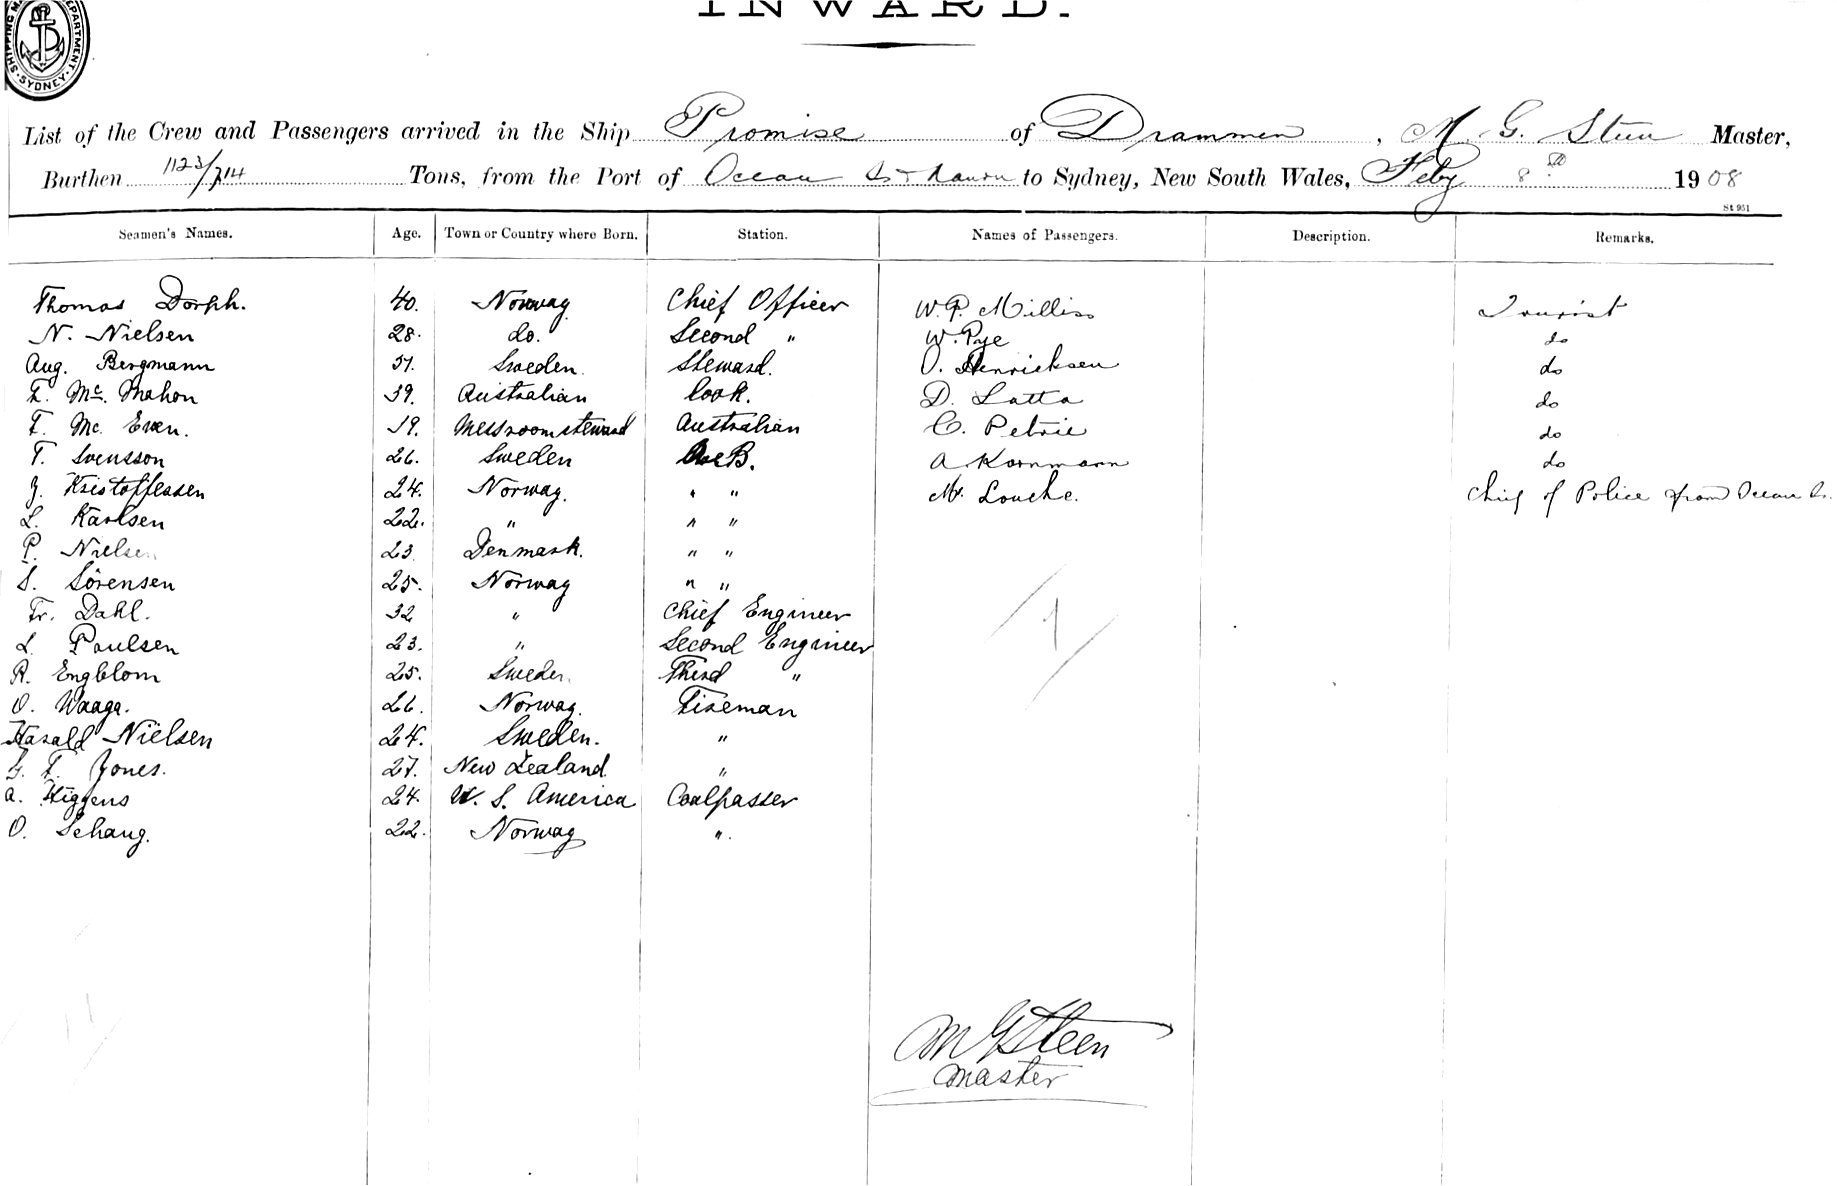 INWARD.
SHIPPING MA DEPARTMENT. SYDNEY.
List of the Crew and Passengers arrived in the Ship Promise of Drammen, M. G. Steen Master,
Burthen 1123/714 Tons, from the Port of Ocean Is & Nauru to Sydney, New South Wales, Feby 8th 1908
St 951
Seamen's Names. Age. Town or Country where Born. Station. Names of Passengers. Description. Remarks.
Thomas Dorph. 40. Norway Chief Officer W. P. Milliss Tourist
N. Nielsen 28. do. Second " W. Pye do
Aug. Bergmann 51. Sweden. Steward. O. Henricksen do
F. Mc. Mahon 39. Australian Cook. D. Latta do
F. Mc. Even. 19. Messroomsteward Australian C. Petrie do
T. Svensson 26. Sweden B. A Kornmann do
J. Kristoffersen 24. Norway. " " Mr. Louche. Chief of Police from Ocean Is.
L. Karlsen 22. " " "
P. Nielsen 23 Denmark. " "
S. Sörensen 25. Norway " "
Fr. Dahl. 32 " Chief Engineer
L. Paulsen 23. " Second Engineer
R. Engblom 25. Sweden. Third "
O. Waage. 26. Norway. Fireman
Harald Nielsen 24. Sweden. "
G. F. Jones. 27. New Zealand "
A. Higgens 24. U. S. America Coalpasser
O. Schaug. 22. Norway ".
M G Steen
Master